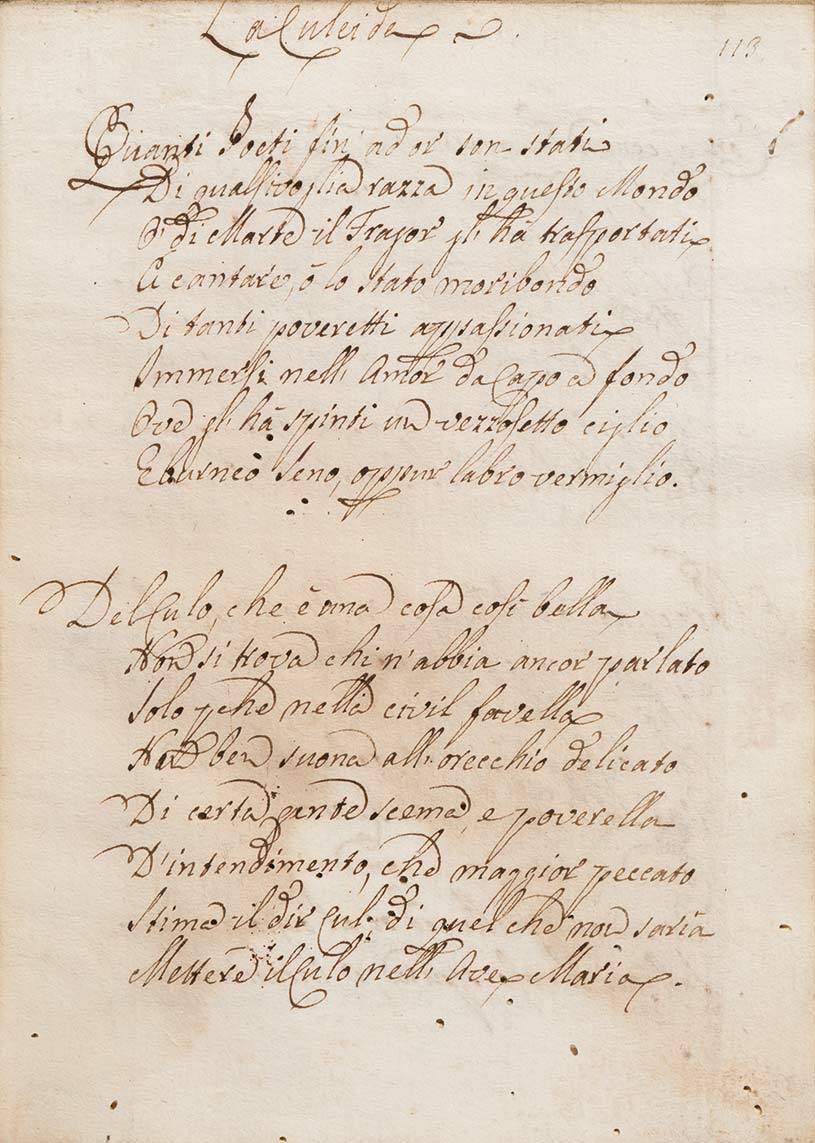 La Culeide
113
Quanti Poeti fin' ad or son stati
Di qualsivoglia razza in questo Mondo
O' di Marte il Fragor gl' hà trasportati
A cantare, ò lo stato moribondo
Di tanti poveretti appassionati
Immersi nell' Amor da Capo a fondo
Ove gl' hà spinti un vezzosetto ciglio
Eburneo seno, oppur labro vermiglio.
Del Culo, che è una cosa così bella
Non si trova chi n'abbia ancor parlato
Solo pche nella civil favella
Non ben suona all' orecchio delicato
Di certa gente scema, e poverella
D'intendimento, che maggior peccato
Stima il dir Cul, di quel che non saria
Mettere il Culo nell' Ave Maria.